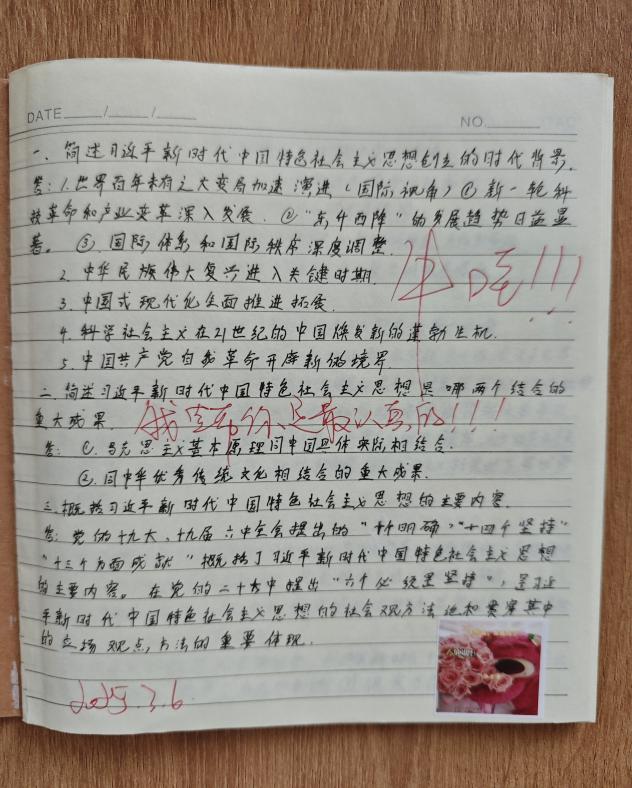 DATE ___/___/___
NO.______
一、简述习近平新时代中国特色社会主义思想创立的时代背景.
答:1.世界百年未有之大变局加速演进(国际视角)① 新一轮科
技革命和产业变革深入发展.②"东升西降"的发展趋势日益显
著。③ 国际体系和国际秩序深度调整.
2. 中华民族伟大复兴进入关键时期.
3. 中国式现代化全面推进拓展.
4. 科学社会主义在21世纪的中国焕发新的蓬勃生机.
5. 中国共产党自我革命开辟新的境界
二、简述习近平新时代中国特色社会主义思想是哪两个结合的
重大成果.
答: ①.马克思主义基本原理同中国具体实际相结合.
②.同中华优秀传统文化相结合的重大成果.
三.概括习近平新时代中国特色社会主义思想的主要内容.
答: 党的十九大、十九届六中全会提出的"十个明确""十四个坚持"
"十三个方面成就"概括了习近平新时代中国特色社会主义思想
的主要内容。在党的二十大中提出"六个必须坚持",是习近
平新时代中国特色社会主义思想的社会观方法论和贯穿其中
的立场观点,方法的重要体现.
哇!!!
我宣布你是最认真的!!!
2025.3.6